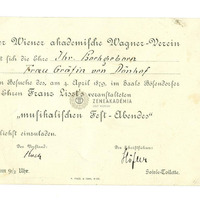 er Wiener akademische Wagner-Verein
t sich die Ehre Ihr Hochgeboren
Frau Gräfin von Dönhof
m Besuche des, am 4. April 1879, im Saale Bösendorfer
Ehren Franz Liszt's veranstalteten
ZENEAKADÉMIA
"musikalischen Fest-Abendes"
lichst einzuladen.
Der Vorstand:
Der Schriftführer:
Höfler
nn 9½ Uhr.
Soirée-Toilette.